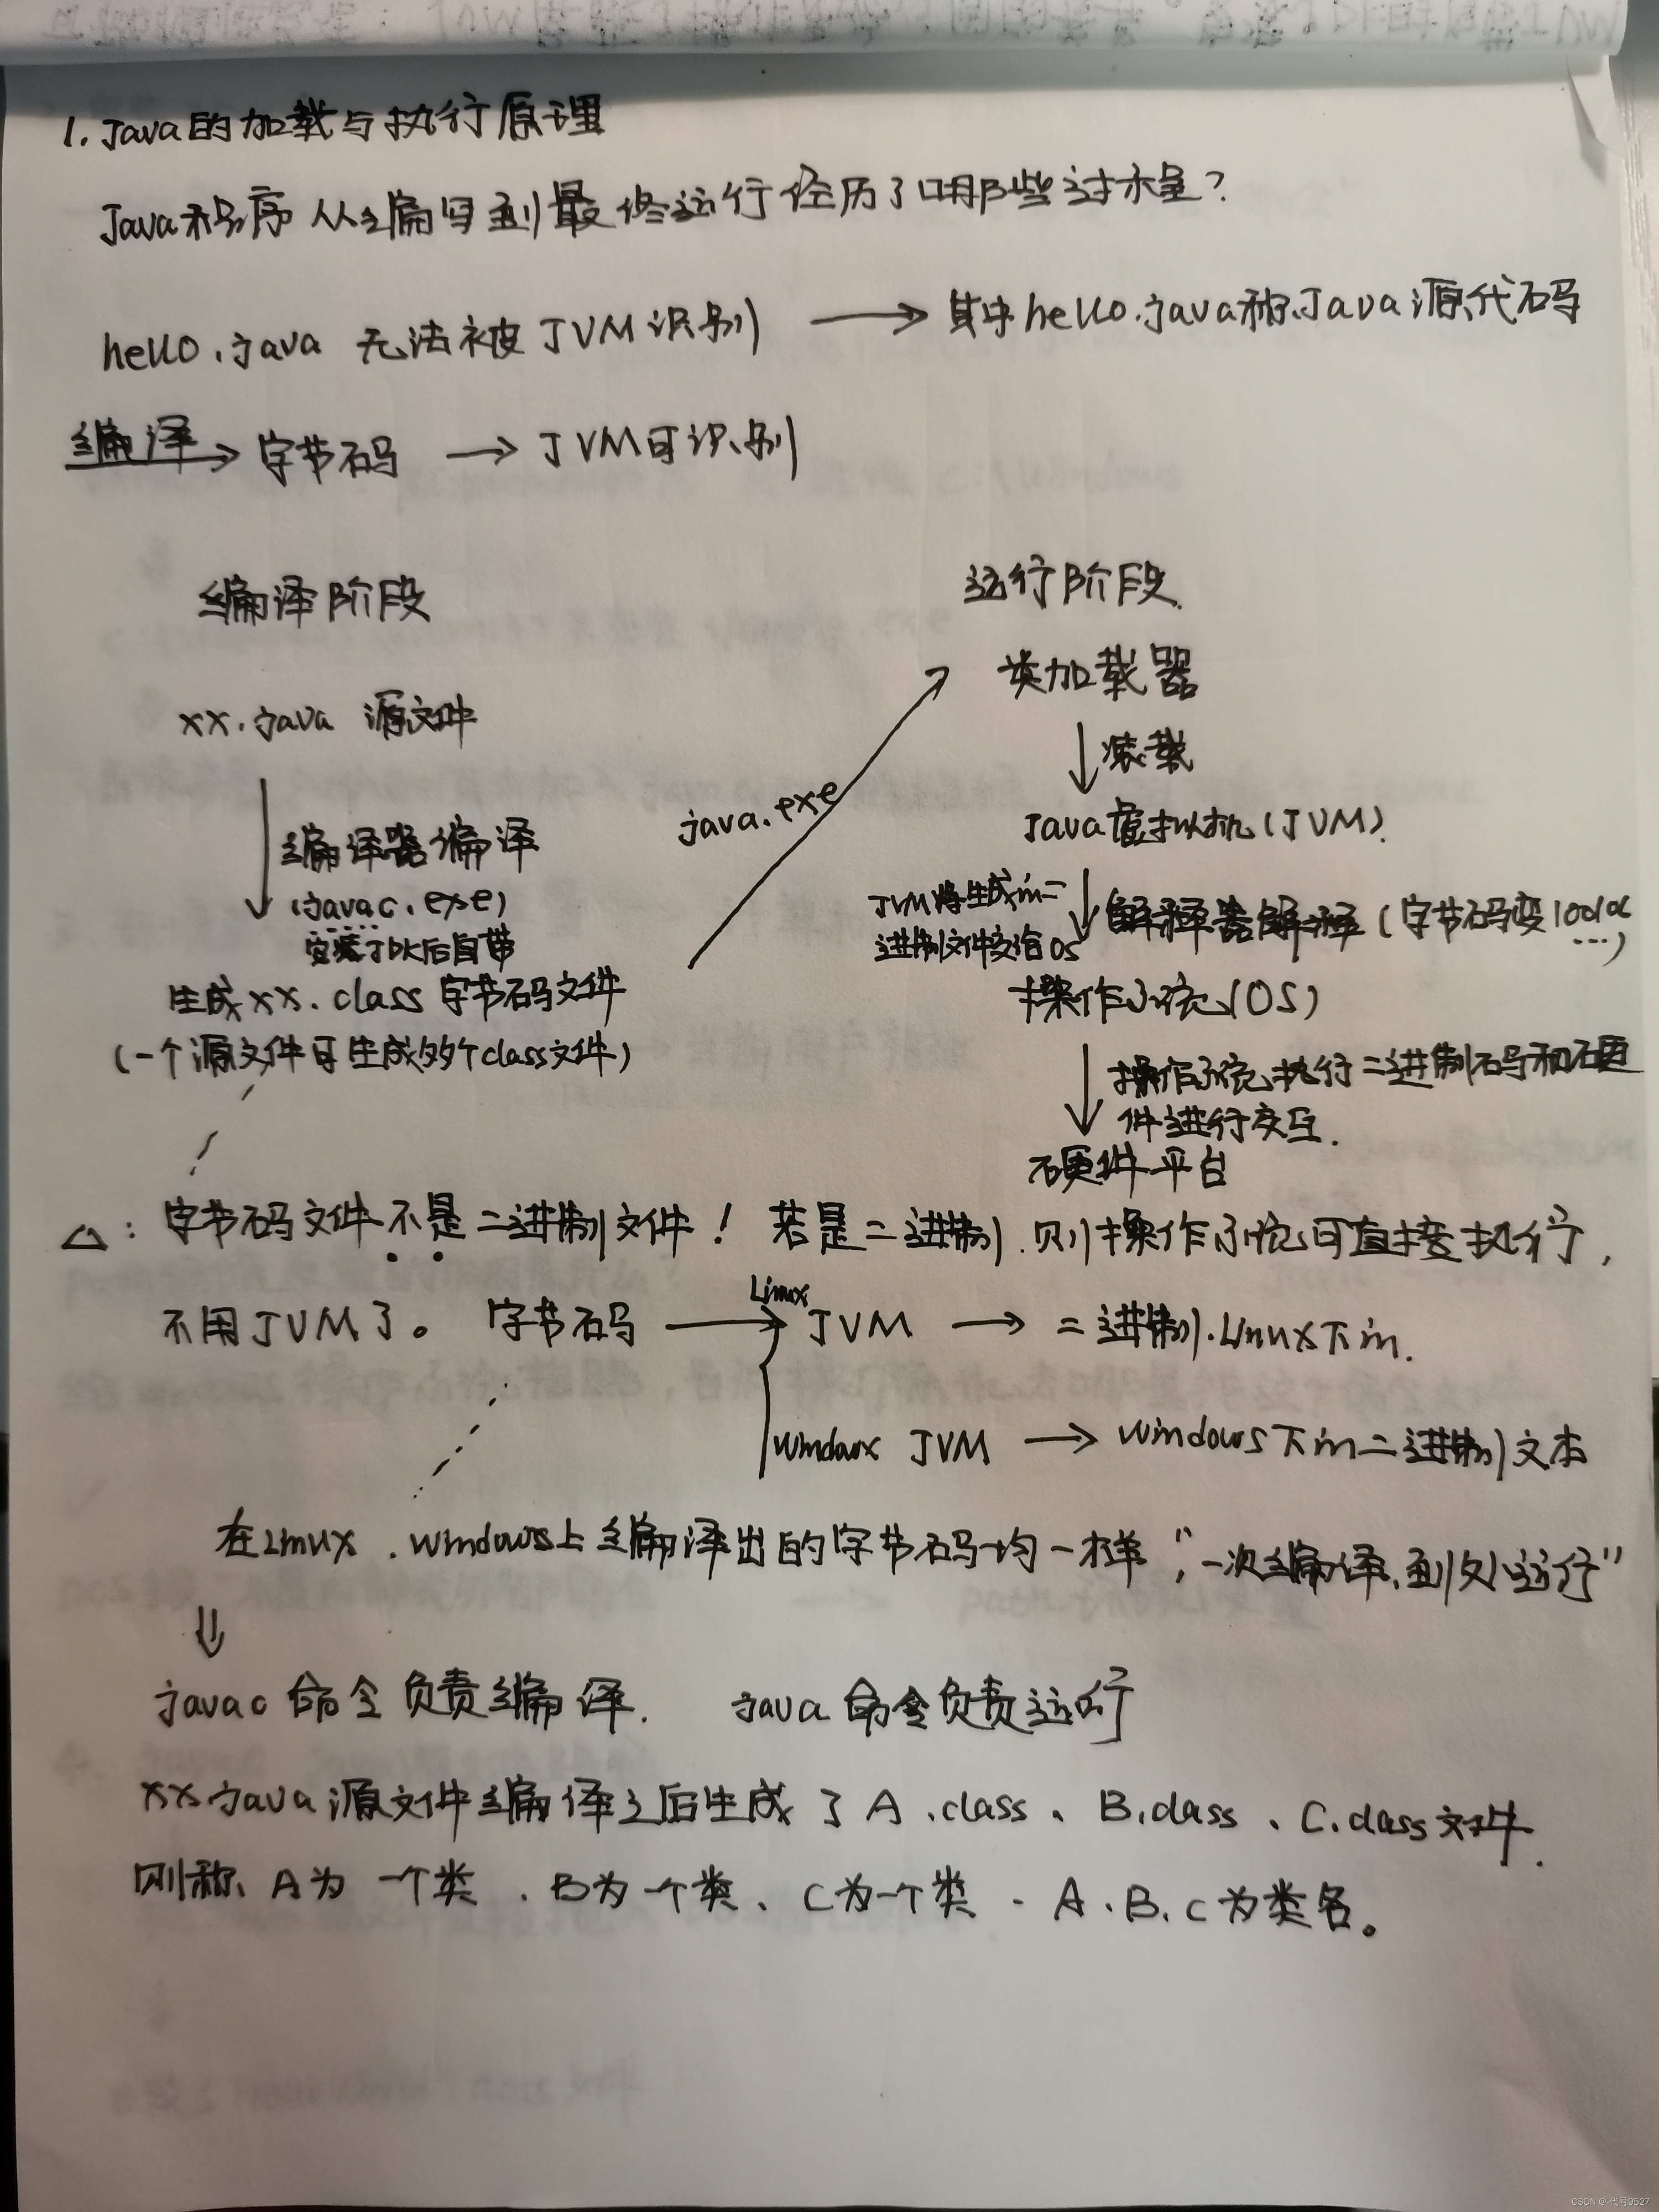 1. Java的加载与执行原理
Java程序从编写到最终运行经历了哪些过程？
hello.java 无法被JVM识别 → 其中hello.java称Java源代码
编译→ 字节码 → JVM可识别
编译阶段
xx.java 源文件
编译器编译
(javac.exe)
安装JDK后自带
生成xx.class字节码文件
(一个源文件可生成多个class文件)
java.exe
运行阶段
类加载器
装载
Java虚拟机(JVM)
JVM将生成的二
进制文件交给OS
解释器解释(字节码变10010
...)
操作系统(OS)
操作系统执行二进制码和硬
件进行交互.
硬件平台
△: 字节码文件不是二进制文件！若是二进制.则操作系统可直接执行,
不用JVM了。 字节码 → Linux JVM → 二进制.Linux下的.
Windows JVM → windows下的二进制文本
在Linux、windows上编译出的字节码均一样，"一次编译,到处运行"
⇓
javac命令负责编译. java命令负责运行
xx.java源文件编译之后生成了A.class、B.class、C.class文件.
则称、A为一个类、B为一个类、C为一个类. A.B.C为类名。
CSDN @代号9527